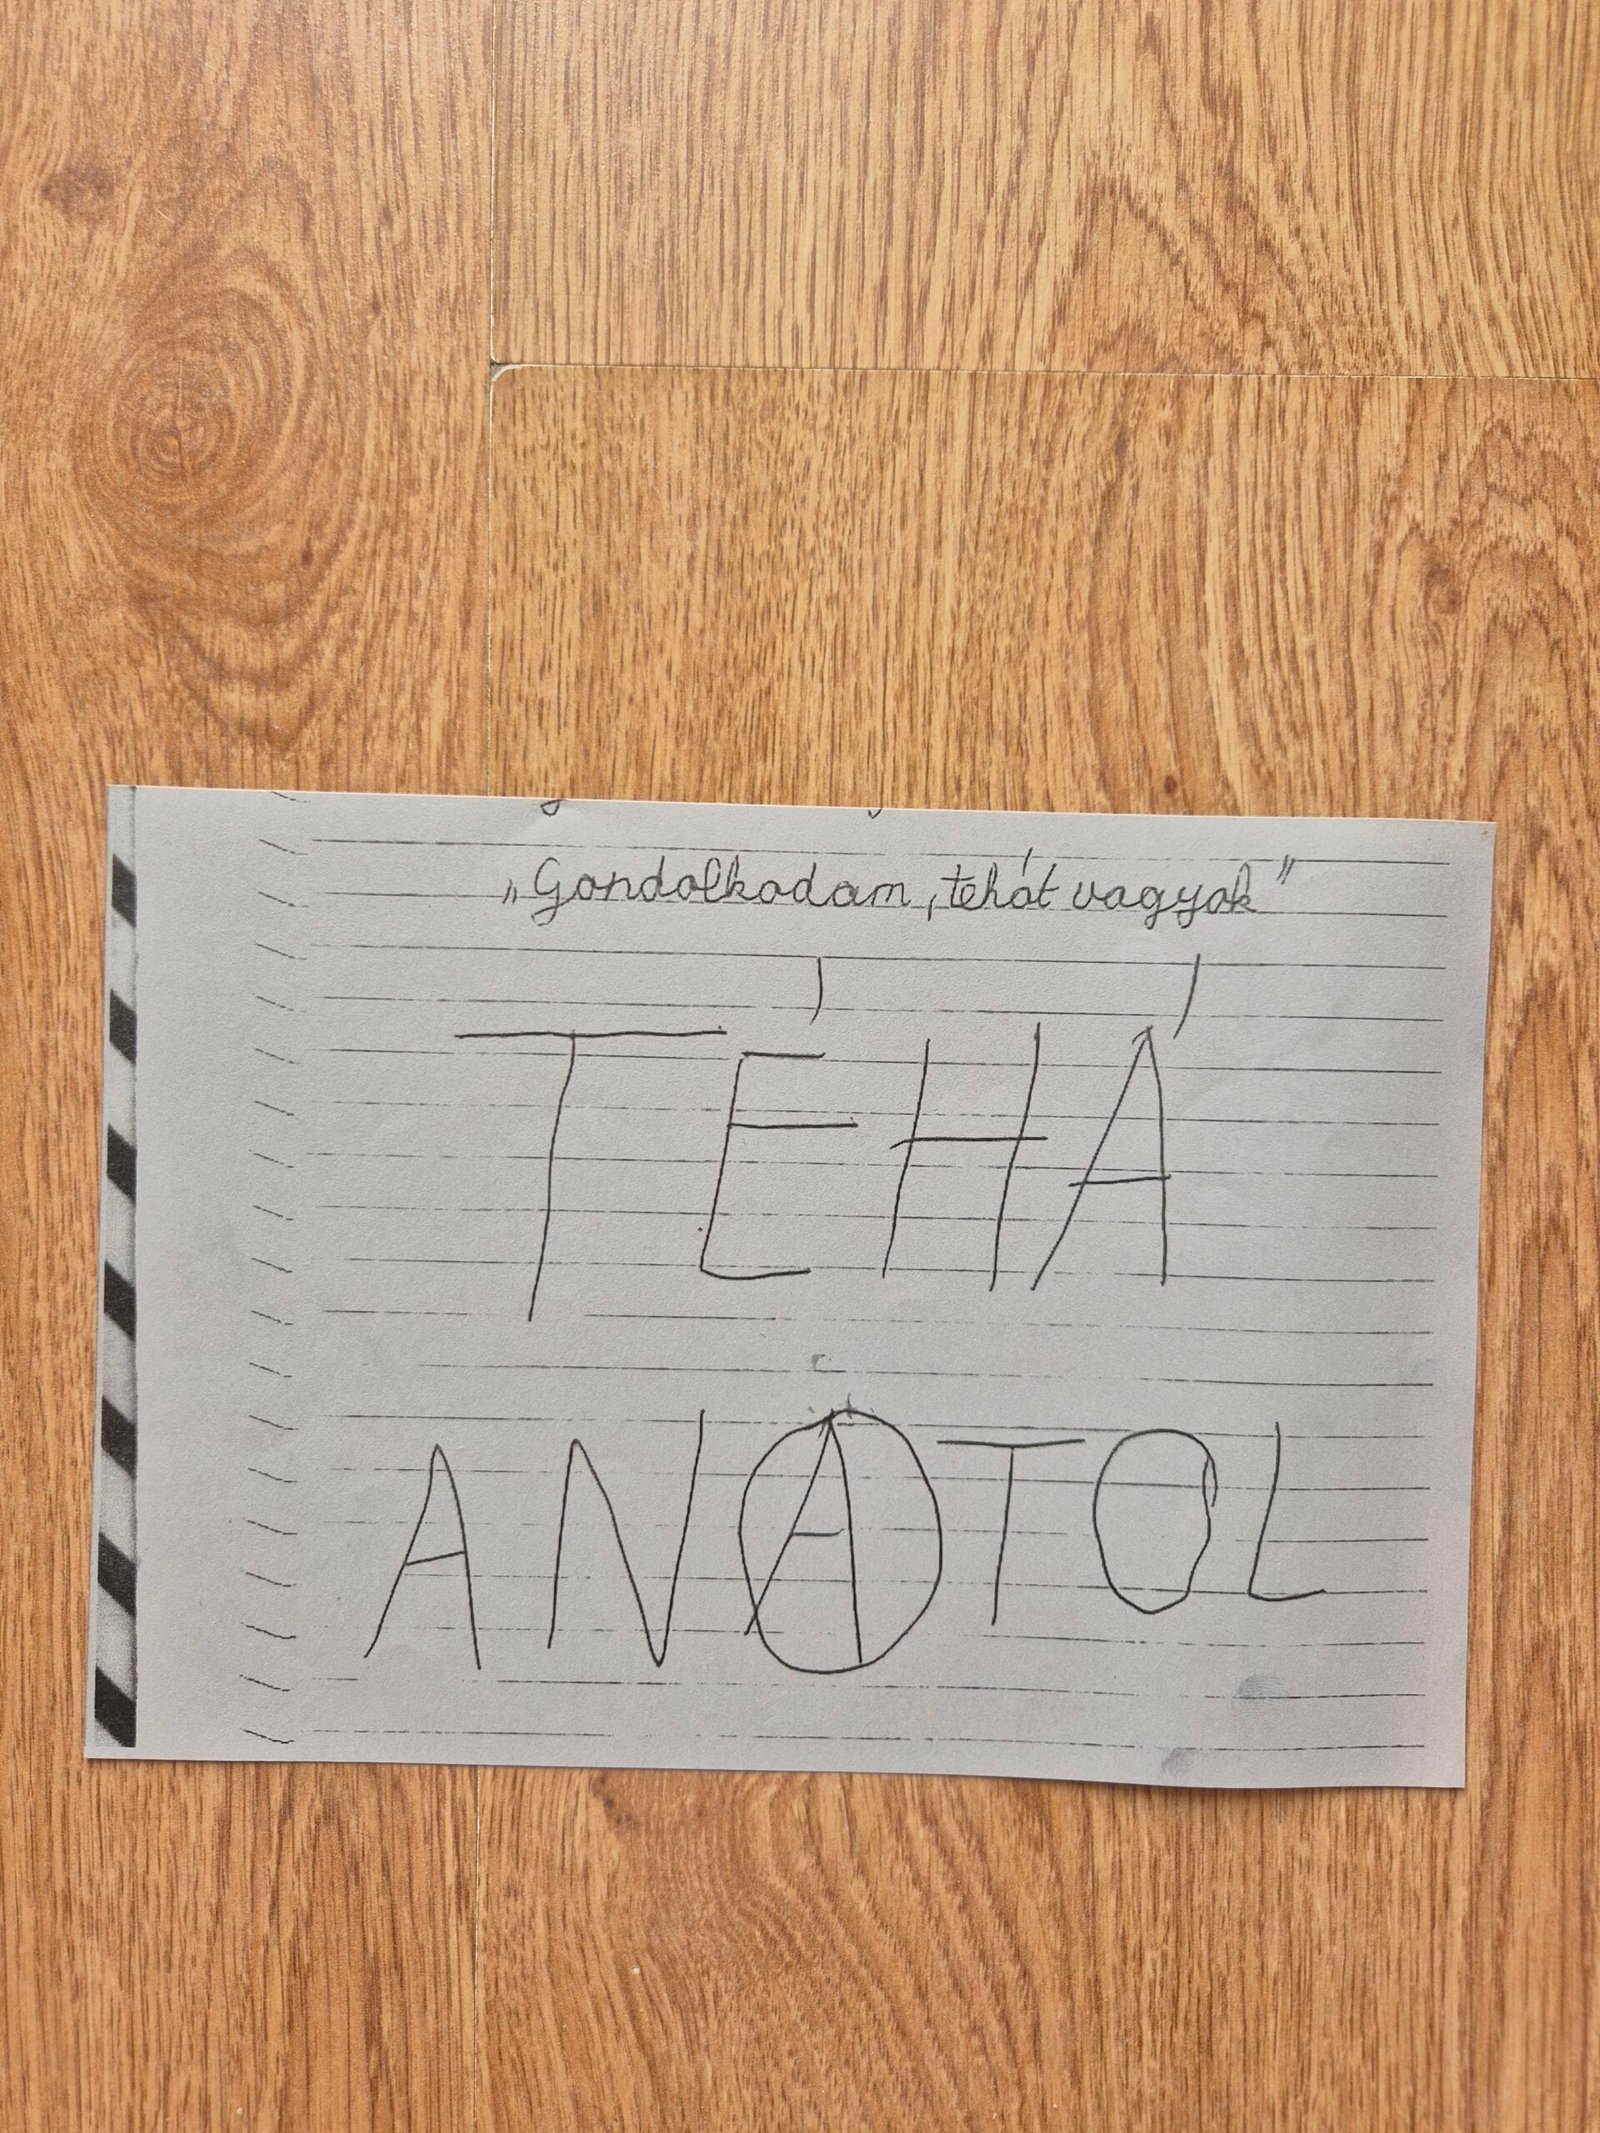 „Gondolkodam, tehát vagyok”
TÉHÁ
ANATOL